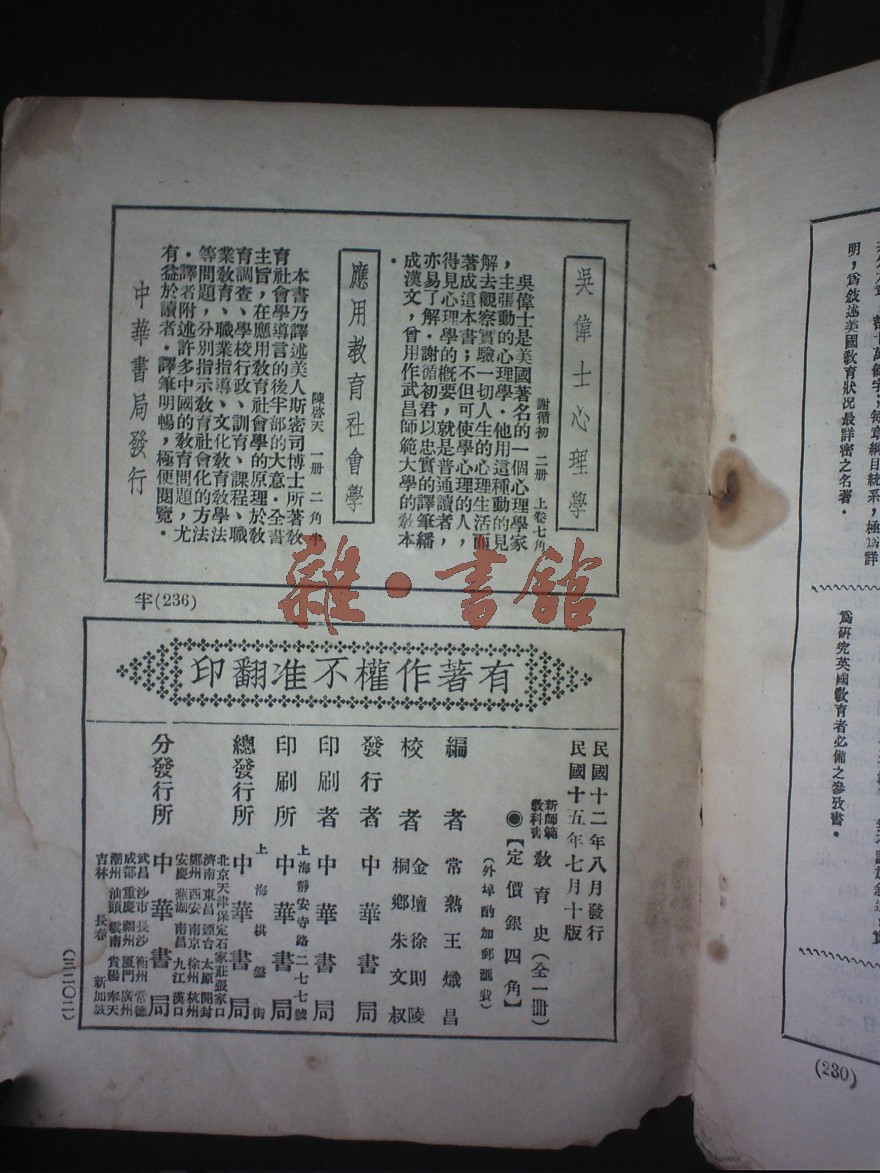 吳偉士心理學
謝循初　二册　上卷七角
吳偉士是美國著名的一個心理學家
，主張動的心理學．他用這種動的見
解去觀察實驗一切人生的心理生活而
著成這本書；不但可使學心理的人，
得見心理學的概要，就是普通讀者，
亦易了解．謝循初君以忠實的譯筆繙
成漢文，曾用作武昌師範大學的敎本
．
應用教育社會學
陳啓天　一册　二角半
本書乃譯述美人斯密司博士所著敎
育社會學導言的後半部的大意．全書
主旨，在應用敎育社會學的原理於敎
育調查、學校行政、訓育、課程、職
業敎育、職業指導、文化敎育敎學法
等問題，分別指示敎育社會化的方法
．譯者附述許多中國的敎育問題，尤
有益於讀者．譯筆明暢，極便閱覽．
中華書局發行
半(236)
雜・書館
有著作權不准翻印
民國十二年八月發行
民國十五年七月十版
新師範敎科書　敎育史（全一册）
◉【定價銀四角】
（外埠酌加郵匯費）
編者　常熟王熾昌
校者　金壇徐則陵
桐鄉朱文叔
發行者　中華書局
印刷者　中華書局
印刷所　上海靜安寺路二七七號
中華書局
總發行所　上海棋盤街
中華書局
分發行所　中華書局
北京天津保定石家莊張家口
濟南 東昌 煙台 太原 開封
鄭州 西安 南京 徐州 杭州
安慶 蕪湖 南昌 九江 漢口
武昌 沙市 長沙 衡州 常德
成都 重慶 福州 厦門 廣州
潮州 汕頭 雲南 貴陽 奉天
吉林 長春 新加坡
（三二〇二）
萬餘字，每章綱目統系，極爲詳
明，爲敘述美國敎育狀况最詳密之名著．
爲硏究英國敎育者必備之參攷書．
(230)